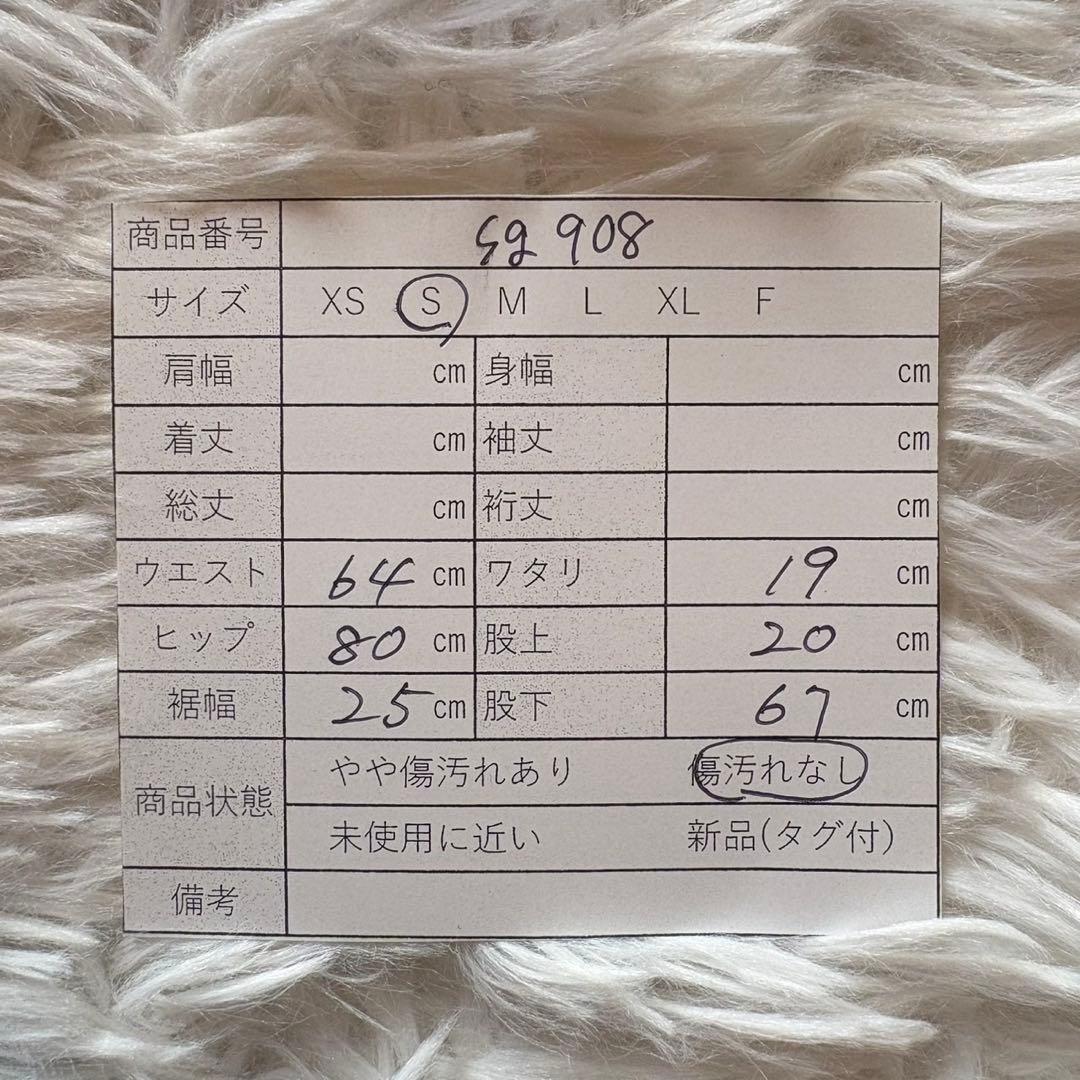 商品番号 sg 908
サイズ XS S M L XL F
肩幅 cm 身幅 cm
着丈 cm 袖丈 cm
総丈 cm 裄丈 cm
ウエスト 64 cm ワタリ 19 cm
ヒップ 80 cm 股上 20 cm
裾幅 25 cm 股下 67 cm
商品状態 やや傷汚れあり 傷汚れなし
未使用に近い 新品(タグ付)
備考